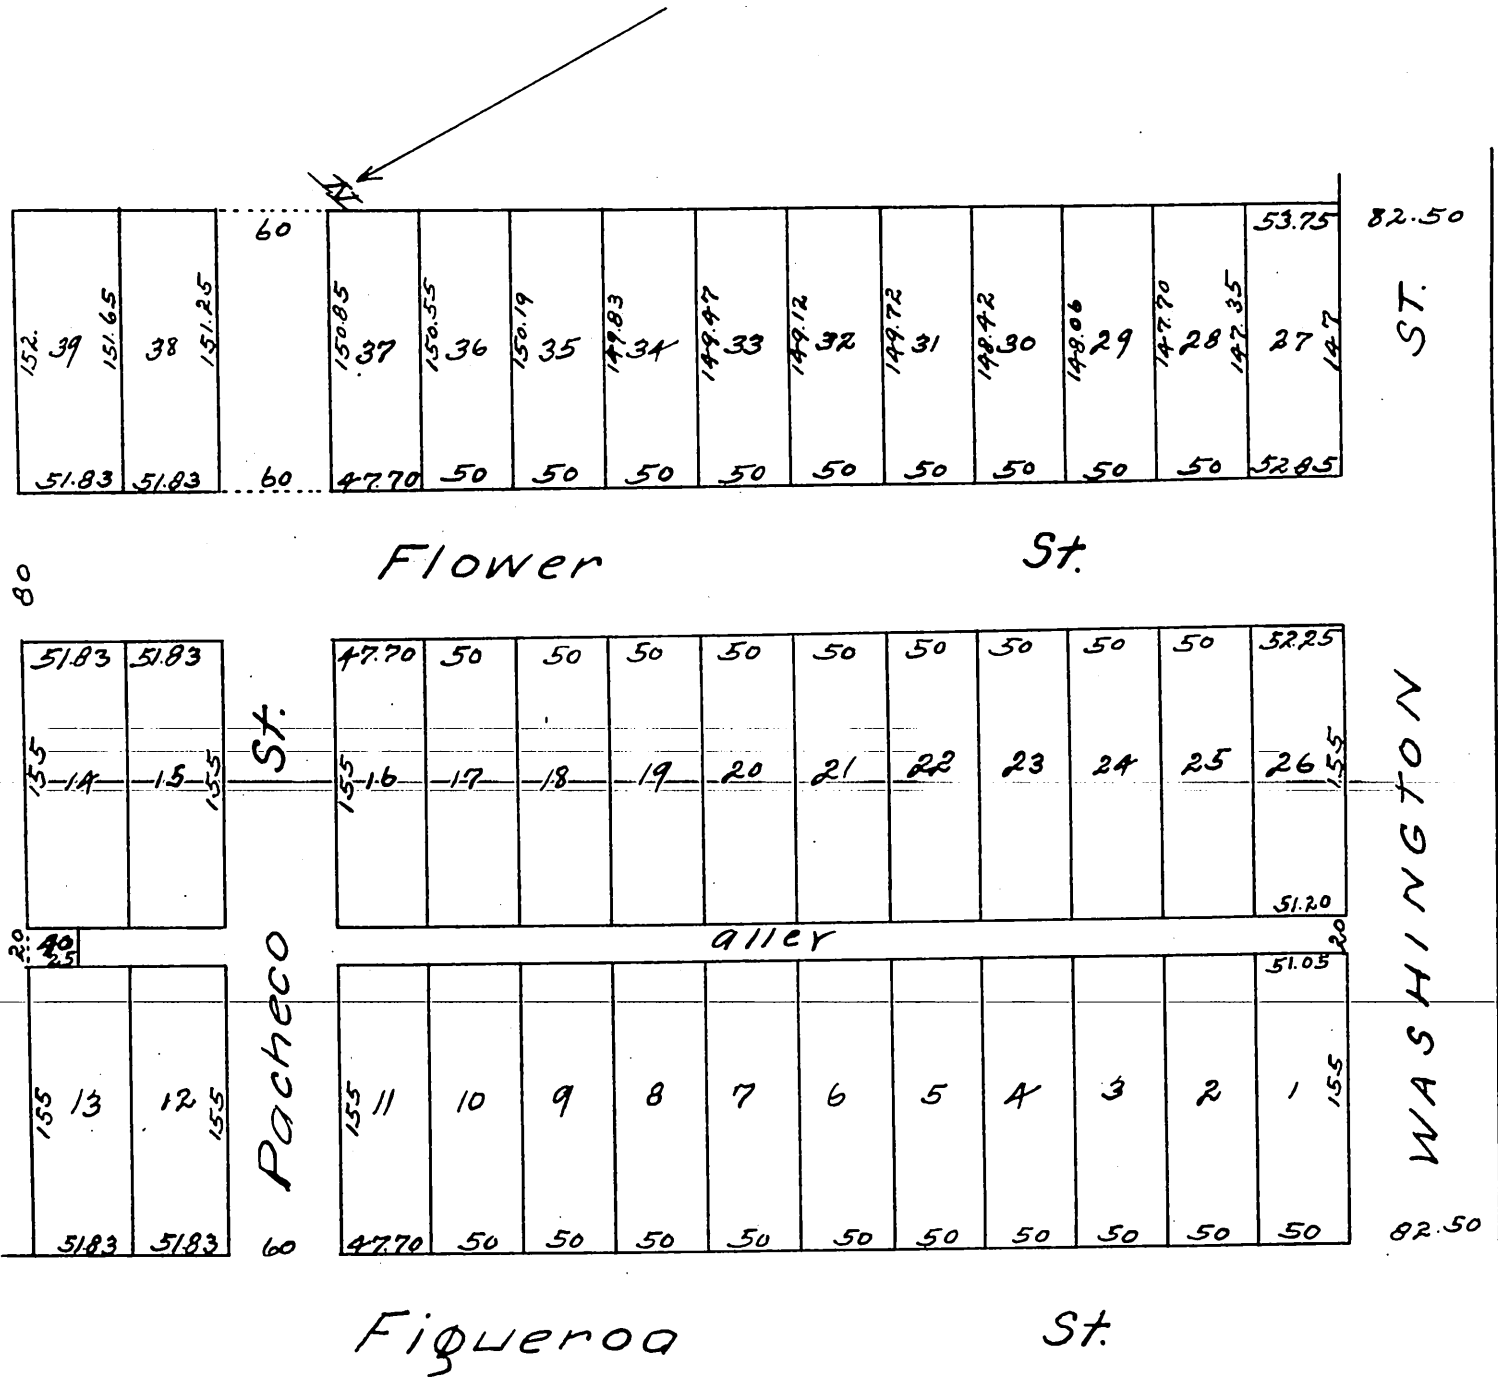 N
60 53.75 82.50
152. 39 151.65 38 151.25 150.85 37 150.55 36 150.19 35 149.83 34 149.47 33 149.12 32 149.72 31 148.42 30 148.06 29 147.70 28 147.35 27 147
51.83 51.83 60 47.70 50 50 50 50 50 50 50 50 50 52.85
Flower St.
80
51.83 51.83 47.70 50 50 50 50 50 50 50 50 50 52.25
155 14 15 155 155 16 17 18 19 20 21 22 23 24 25 26 155
51.20
20 40 aller 20
25
51.05
155 13 12 155 155 11 10 9 8 7 6 5 4 3 2 1 155
51.83 51.83 60 47.70 50 50 50 50 50 50 50 50 50 50 82.50
Pacheco St.
WASHINGTON ST.
Figueroa St.